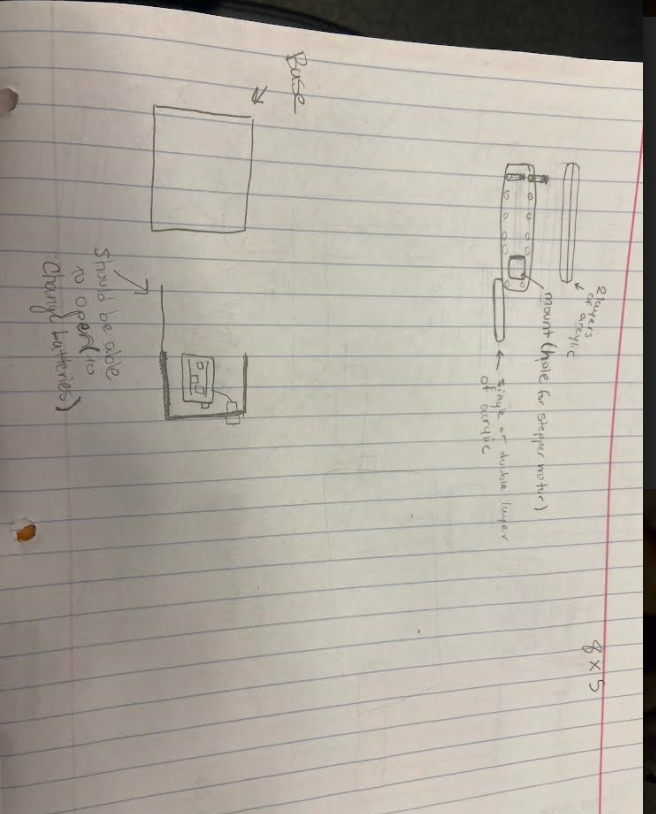 8 x 5
2 layers
of acrylic
mount (hole for stepper motor)
single or double layer
of acrylic
Base
Should be able
to open (to
Change batteries)